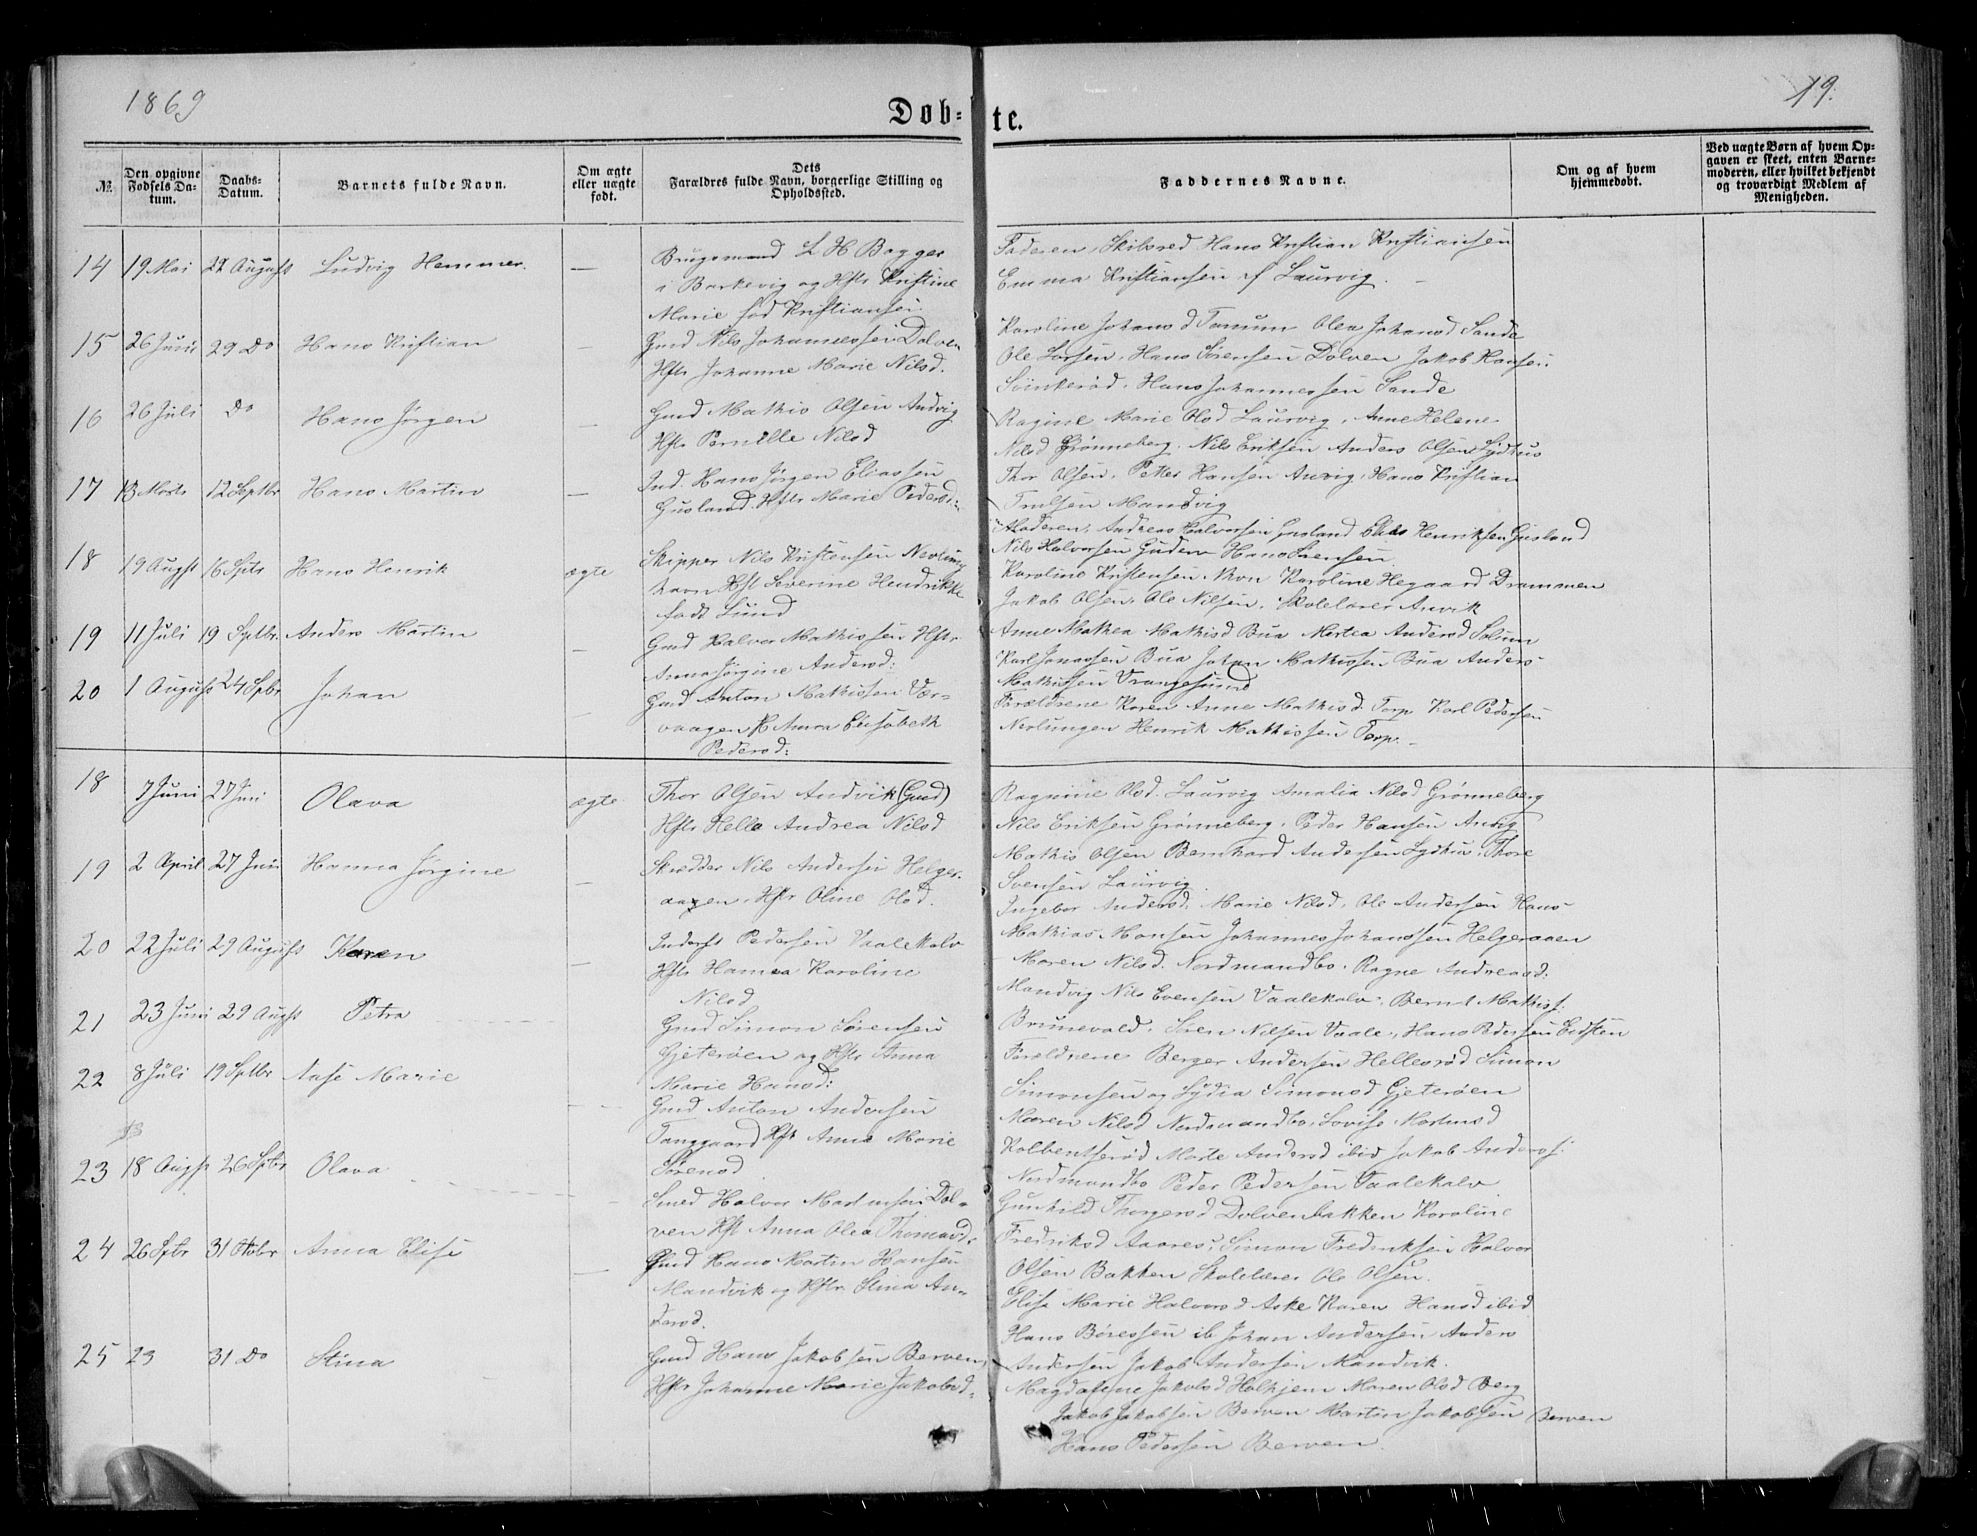 1869
19.
Døb-te.
№
Den opgivne Fødsels Datum.
Daabs-Datum.
Barnets fulde Navn.
Om ægte eller uægte født.
Dets Forældres fulde Navn, borgerlige Stilling og Opholdssted.
Faddernes Navne.
Om og af hvem hjemmedøbt.
Ved uægte Børn af hvem Opgaven er skeet, enten Barnemoderen, eller hvilket bekjendt og troværdigt Medlem af Menigheden.
14 19 Mai 22 August Ludvig Hemmer. — Brugsmand L H Bagger
i Barkevig og Hstr Kristine
Marie fød Kristiansen.
Faderen, Skibsred Hans Kristian Kristiansen
Emma Kristiansen af Laurvig.
15 26 Juni 29 Do Hans Kristian — Gmd Nils Johannessen Dolven
Hstr Johanne Marie Nilsd.
Karoline Johansd Tanum Olea Johansd Sande
Ole Larsen, Hans Sørensen Dolven Jakob Hansen
Hans Johannessen Sande
16 26 Juli Do Hans Jørgen — Gmd Mathis Olsen Andvig
Hstr Pernille Nilsd
Ragine Marie Olsd Laurvig, Anne Helene
Nilsd Grønneberg, Nils Eriksen Anders Olsen Lydhus
17 13 Marts 12 Septbr Hans Martin — Ind. Hans Jørgen Eliassen
Gusland. Hstr Marie Pedersd:
Thor Olsen, Petter Hansen Anvig, Hans Kristian
Trulsen Mandvig
Moderen, Andreas Halvorsen Gusland Henriksen Gusland
Nils Halvorsen Guden Hans Sørensen
18 19 Augst 16 Sptr Hans Henrik ægte Skipper Nils Kristensen Nevlung
havn Hst Severine Hendrikke
født Lund
Karoline Kristensen, Karoline Hegaard Drammen
Jakob Olsen, Ole Nilsen, Skolelærer Anvik
19 11 Juli 19 Sptbr. Anders Martin — Gmd Halvor Mathissen Hstr
Anna Jørgine Andersd:
Anne Mathea Mathisd Bua Martea Andersd Solum
Karl Jonassen Bua Johan Mathissen Bua Anders
Mathissen Vrangesund
20 1 August 24 Spbr Johan — Gmd Anton Mathissen Vær-
vaagen H Anna Elisabeth
Pedersd:
Forældrene Karen Anne Mathisd. Torp Karl Pedersen
Nevlungen Henrik Mathissen Torp.
18 7 Juni 27 Juni Olava ægte Thor Olsen Andvik (Gmd)
Hstr Helle Andrea Nilsd
Ragnine Olsd. Laurvig Amalia Nilsd Grønneberg
Nils Eriksen Grønneberg, Peder Hansen Anvig
Mathis Olsen Bernhard Andersen Lydhus, Thore
Svensen Laurvig
19 2 April 27 Juni Hanna Jørgine — Skrædder Nils Andersen Helger-
aagen, Hstr Oline Olsd.
Ingebor Andersd. Marie Nilsd, Ole Andersen Hans
Mathias Monsen Johannes Johanssen Helgeraaen
20 22 Juli 29 August Karen — Inderst Pedersen Vaalekalv
Hstr Hanna Karoline
Nilsd
Maren Nilsd. Nordmandbo. Ragne Andreasd:
Mandvig Nils Evensen Vaalekalv, Bernt Mathisf.
Brunevald. Søren Nilsen Vaale, Hans Pedersen Eidsten
21 23 Juni 29 Augst Petra Gmd Simon Sørensen
Gjeterøen og Hstr Anna
Marie Hansd:
Forældrene Berger Andersen Hellesrød Simon
Simonsen og Lydia Simonsd Gjeterøen
22 8 Juli 19 Sptbr Aase Marie Gmd Anton Andersen
Tanggaard Hstr Anna Marie
Sørensd
Maren Nilsd Nordmandbo, Lovise
Marte Andersd ibid Jakob Andersf.
Nordmandbo Peder Pedersen Vaalekalv
23 18 Augst 26 Sptbr Olava Smed Halvor Martinsen Dol-
ven Hst Anna Olea Thomasd.
Gunhild Thorgersd Dolvenbakken Karoline
Fredriksd Aarøes, Simon Fredriksen Halvor
Olsen Bakken Skolelærer Ole Olsen.
24 26 Sptbr 31 Octobr Anna Elise — Gmd Hans Martin Hansen
Mandvik og Hstr Stina An-
dersd.
Elise Marie Halvorsd Aske Karen Hansd ibid
Hans Børessen ib Johan Andersen Anders
Andersen Jakob Andersen Mandvik.
25 23 31 Do Stina Gmd Hans Jakobsen Berven
Hstr Johanne Marie Jakobsd
Magdalene Jakobsd Holkjem Maren Olsd Berg
Jakob Jakobsen Berven Martin Jakobsen Berven
Hans Pedersen Berven.